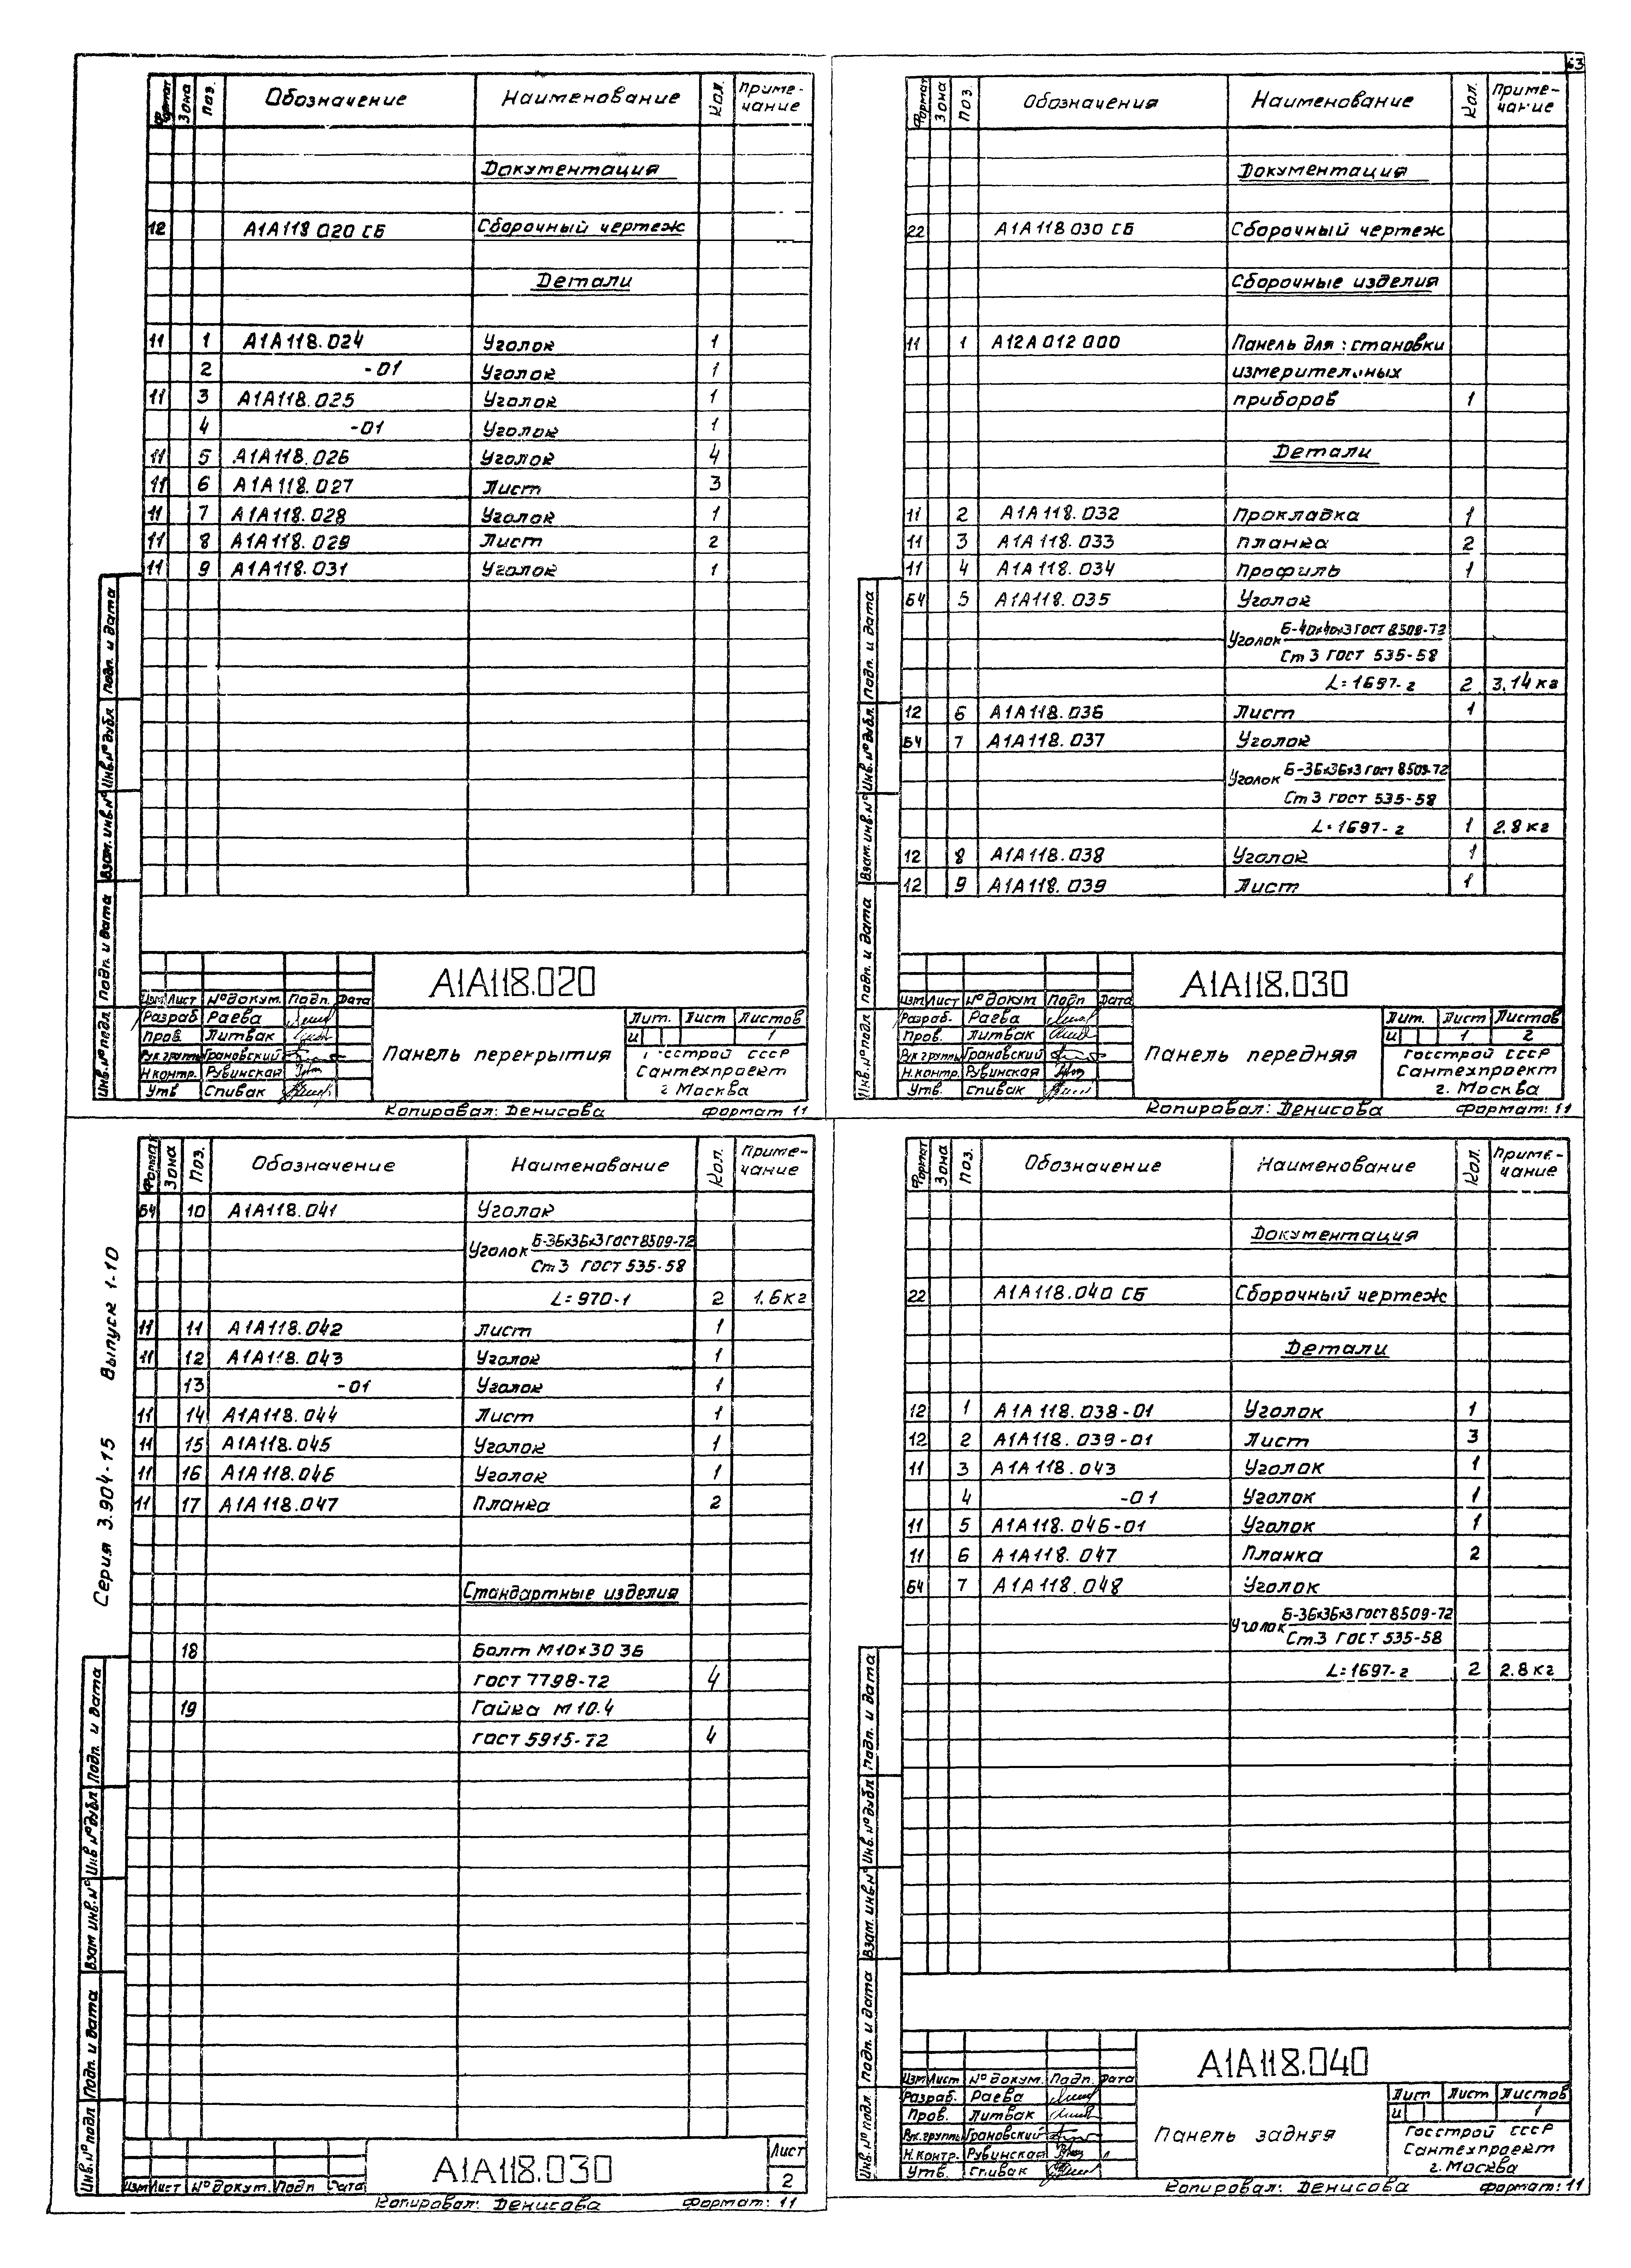 63
Формат Зона Поз. Обозначение Наименование Кол. Приме-чание
Документация
12 А1А118 020 СБ Сборочный чертеж
Детали
11 1 А1А118.024 Уголок 1
2 -01 Уголок 1
11 3 А1А118.025 Уголок 1
4 -01 Уголок 1
11 5 А1А118.026 Уголок 4
11 6 А1А118.027 Лист 3
11 7 А1А118.028 Уголок 1
11 8 А1А118.029 Лист 2
11 9 А1А118.031 Уголок 1
Инв.№ подл. Подп. и дата Взам. инв.№ Инв.№ дубл. Подп. и дата
А1А118.020
Изм Лист № докум. Подп. Дата
Разраб Раева
Пров. Литвак
Рук.группы Грановский
Н.контр. Рувинская
Утв Спивак
Панель перекрытия
Лит. Лист Листов
И 1
Госстрой СССР
Сантехпроект
г Москва
Копировал: Денисова Формат 11
Формат Зона Поз. Обозначение Наименование Кол. Приме-чание
Документация
22 А1А118 030 СБ Сборочный чертеж
Сборочные изделия
11 1 А12А 012 000 Панель для установки
измерительных
приборов 1
Детали
11 2 А1А118.032 Прокладка 1
11 3 А1А118.033 Планка 2
11 4 А1А118.034 Профиль 1
Б4 5 А1А118.035 Уголок
Уголок Б-40х40х3 ГОСТ 8509-72
Ст 3 ГОСТ 535-58
L=1697-г 2 3.14 кг
12 6 А1А118.036 Лист 1
Б4 7 А1А118.037 Уголок
Уголок Б-36х36х3 ГОСТ 8509-72
Ст 3 ГОСТ 535-58
L=1697-г 1 2.8 кг
12 8 А1А118.038 Уголок 1
12 9 А1А118.039 Лист 1
Инв.№ подл Подп. и дата Взам. инв.№ Инв.№ дубл. Подп. и дата
А1А118.030
Изм Лист № докум Подп Дата
Разраб. Раева
Пров. Литвак
Рук группы Грановский
Н.контр. Рувинская
Утв. Спивак
Панель передняя
Лит. Лист Листов
И 1 2
Госстрой СССР
Сантехпроект
г. Москва
Копировал: Денисова Формат: 11
Серия 3.904-15 Выпуск 1-10
Формат Зона Поз. Обозначение Наименование Кол. Приме-чание
Б4 10 А1А118.041 Уголок
Уголок Б-36х36х3 ГОСТ 8509-72
Ст 3 ГОСТ 535-58
L=970-1 2 1.6 кг
11 11 А1А118.042 Лист 1
11 12 А1А118.043 Уголок 1
13 -01 Уголок 1
11 14 А1А118.044 Лист 1
11 15 А1А118.045 Уголок 1
11 16 А1А118.046 Уголок 1
11 17 А1А118.047 Планка 2
Стандартные изделия
18 Болт М10х30 36
ГОСТ 7798-72 4
19 Гайка М10.4
ГОСТ 5915-72 4
Инв.№ подл Подп. и дата Взам инв.№ Инв №дубл Подп. и дата
Изм Лист № докум. Подп Дата
А1А118.030
Лист
2
Копировал: Денисова Формат: 11
Формат Зона Поз. Обозначение Наименование Кол. Приме-чание
Документация
22 А1А118.040 СБ Сборочный чертеж
Детали
12 1 А1А118.038-01 Уголок 1
12 2 А1А118.039-01 Лист 3
11 3 А1А118.043 Уголок 1
4 -01 Уголок 1
11 5 А1А118.046-01 Уголок 1
11 6 А1А118.047 Планка 2
Б4 7 А1А118.048 Уголок
Уголок Б-36х36х3 ГОСТ 8509-72
Ст.3 ГОСТ 535-58
L=1697-г 2 2.8 кг
Инв.№ подл Подп. и дата Взам. инв.№ Инв.№ дубл Подп. и дата
А1А118.040
Изм Лист № докум. Подп. Дата
Разраб. Раева
Пров. Литвак
Рук.группы Грановский
Н.контр. Рувинская
Утв. Спивак
Панель задняя
Лит Лист Листов
И 1
Госстрой СССР
Сантехпроект
г. Москва
Копировал: Денисова Формат: 11